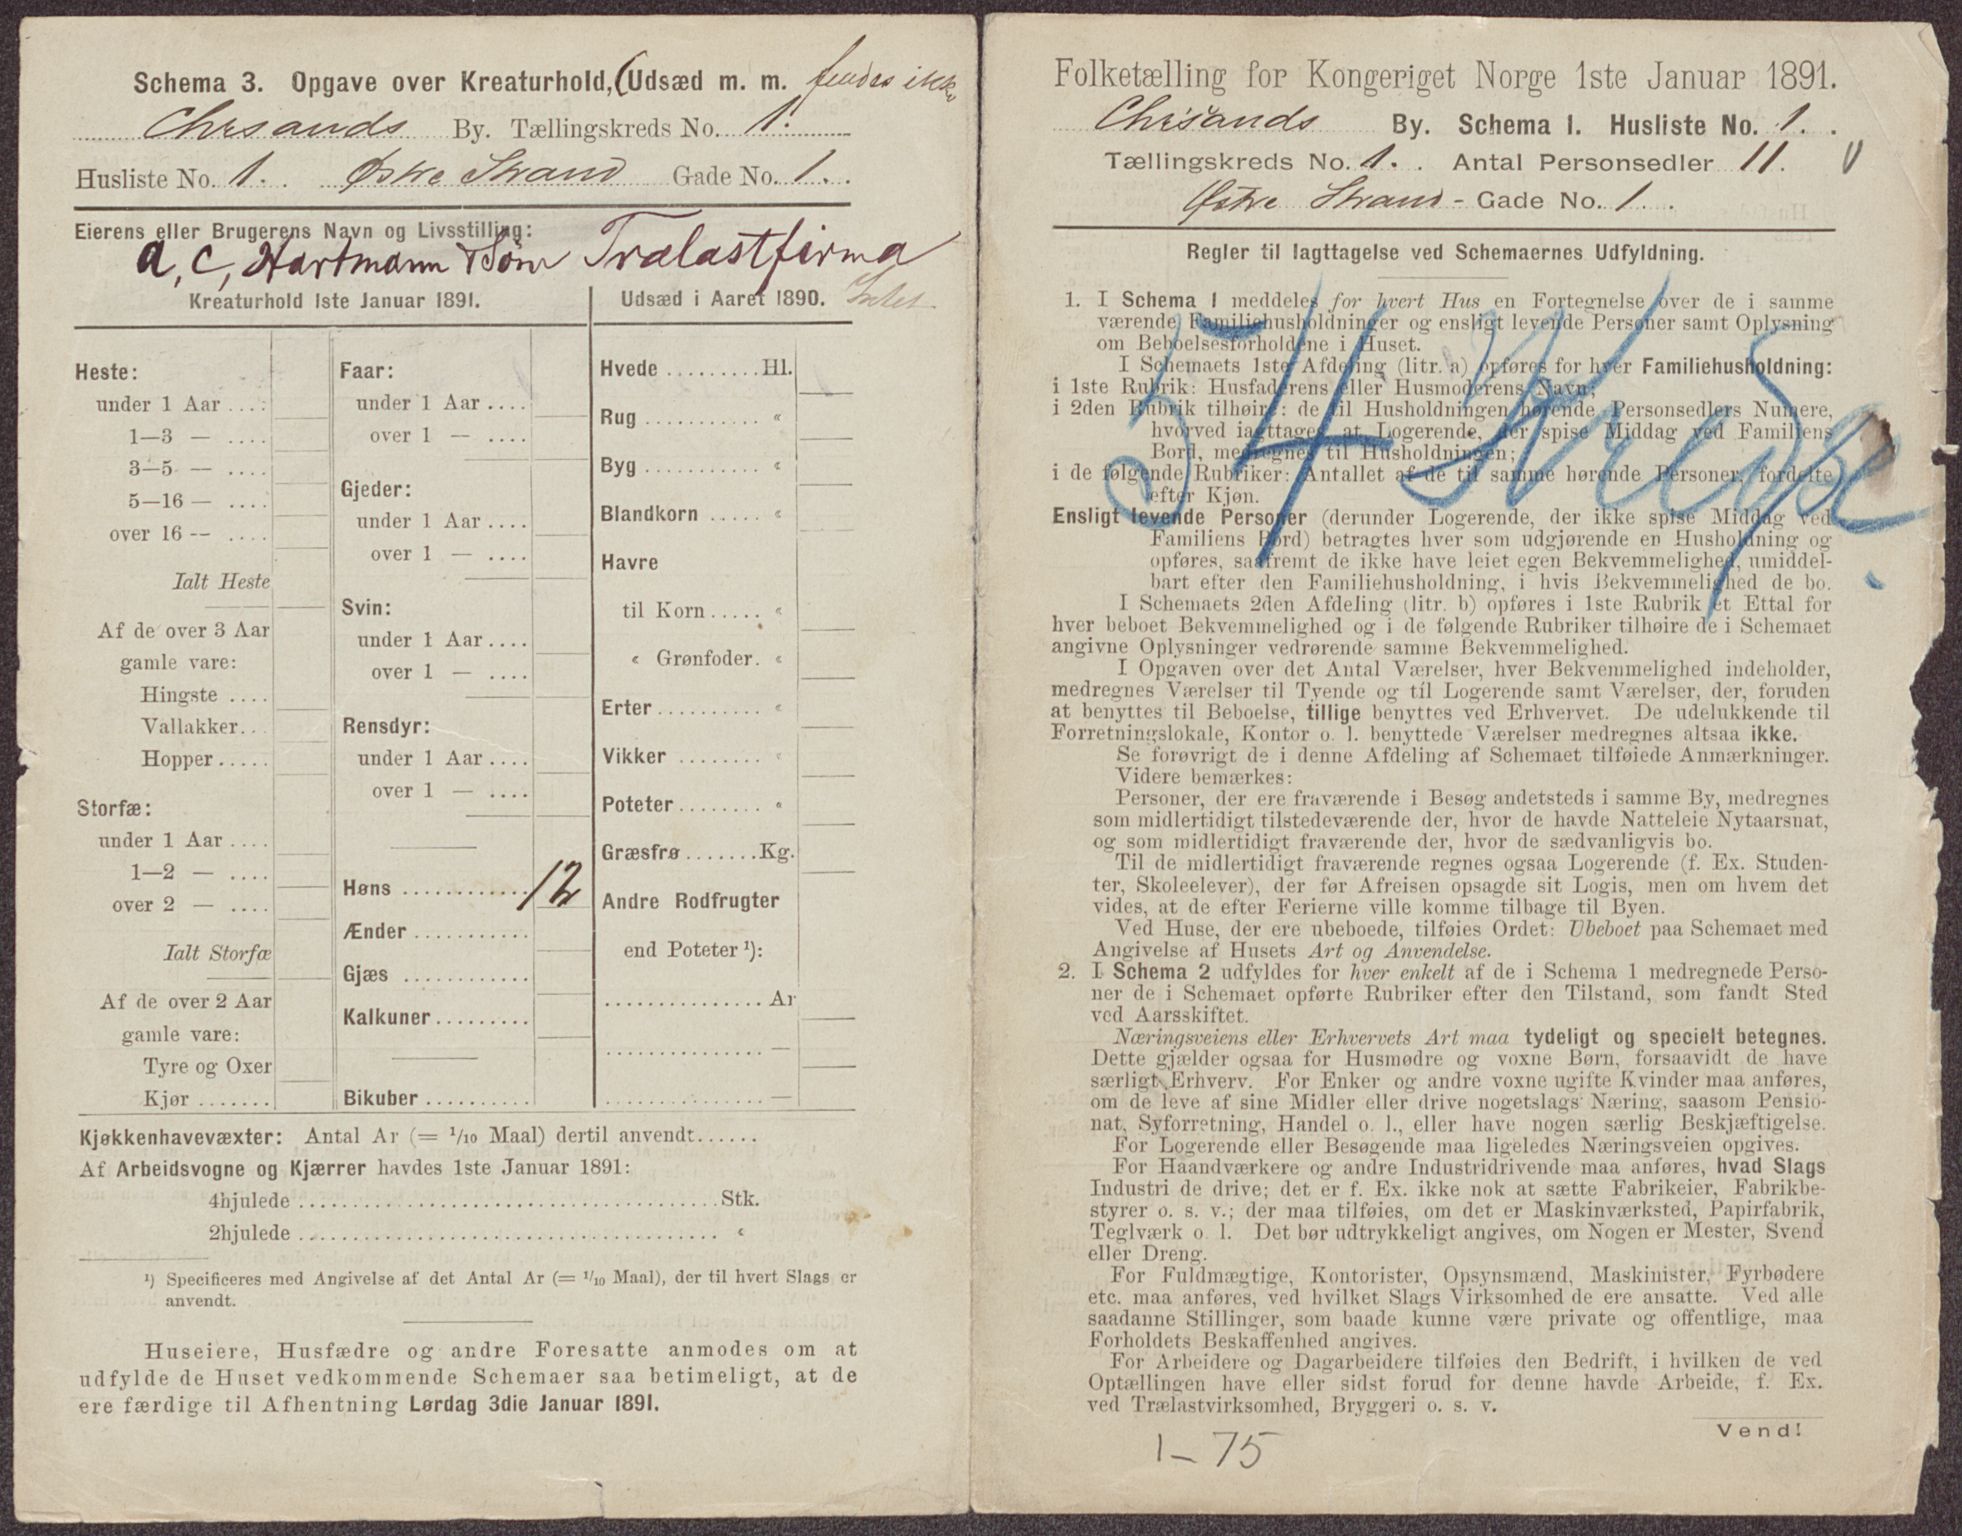 Schema 3. Opgave over Kreaturhold, (Udsæd m. m. findes ikke
Chrsands By. Tællingskreds No. 1.
Husliste No. 1. Østre Strand Gade No. 1.
Eierens eller Brugerens Navn og Livsstilling:
A, C, Hartmann & Søn Trælastfirma
Kreaturhold 1ste Januar 1891.
Heste:
under 1 Aar....
1—3 — ....
3—5 — ....
5—16 — ....
over 16 -- ....
Ialt Heste
Af de over 3 Aar
gamle vare:
Hingste ....
Vallakker...
Hopper.....
Storfæ:
under 1 Aar....
1—2 — ....
over 2 — ....
Ialt Storfæ
Af de over 2 Aar
gamle vare:
Tyre og Oxer
Kjør .......
Faar:
under 1 Aar....
over 1 — ....
Gjeder:
under 1 Aar....
over 1 — ....
Svin:
under 1 Aar....
over 1 — ....
Rensdyr:
under 1 Aar....
over 1 — ....
Høns ............ 12
Ænder ...........
Gjæs ............
Kalkuner.........
Bikuber ..........
Udsæd i Aaret 1890. Intet
Hvede .........Hl.
Rug ........... «
Byg ........... «
Blandkorn ..... «
Havre
til Korn ..... «
« Grønfoder. «
Erter.......... «
Vikker ........ «
Poteter........ «
Græsfrø .......Kg.
Andre Rodfrugter
end Poteter ¹):
............... Ar
............... —
............... —
Kjøkkenhavevæxter: Antal Ar (= 1/10 Maal) dertil anvendt......
Af Arbeidsvogne og Kjærrer havdes 1ste Januar 1891:
4hjulede .......................................Stk.
2hjulede ....................................... «
¹) Specificeres med Angivelse af det Antal Ar (= 1/10 Maal), der til hvert Slags er
anvendt.
Huseiere, Husfædre og andre Foresatte anmodes om at
udfylde de Huset vedkommende Schemaer saa betimeligt, at de
ere færdige til Afhentning Lørdag 3die Januar 1891.
Folketælling for Kongeriget Norge 1ste Januar 1891.
Chrisands By. Schema 1. Husliste No. 1.
Tællingskreds No. 1. Antal Personsedler 11.
Østre Strand - Gade No. 1.
Regler til Iagttagelse ved Schemaernes Udfyldning.
1. I Schema 1 meddeles for hvert Hus en Fortegnelse over de i samme
værende Familiehusholdninger og ensligt levende Personer samt Oplysning
om Beboelsesforholdene i Huset.
I Schemaets 1ste Afdeling (litr. a) opføres for hver Familiehusholdning:
i 1ste Rubrik: Husfaderens eller Husmoderens Navn;
i 2den Rubrik tilhøire: de til Husholdningen hørende Personsedlers Numere,
hvorved iagttages, at Logerende, der spise Middag ved Familiens
Bord, medregnes til Husholdningen;
i de følgende Rubriker: Antallet af de til samme hørende Personer, fordelte
efter Kjøn.
Ensligt levende Personer (derunder Logerende, der ikke spise Middag ved
Familiens Bord) betragtes hver som udgjørende en Husholdning og
opføres, saafremt de ikke have leiet egen Bekvemmelighed, umiddel-
bart efter den Familiehusholdning, i hvis Bekvemmelighed de bo.
I Schemaets 2den Afdeling (litr. b) opføres i 1ste Rubrik et Ettal for
hver beboet Bekvemmelighed og i de følgende Rubriker tilhøire de i Schemaet
angivne Oplysninger vedrørende samme Bekvemmelighed.
I Opgaven over det Antal Værelser, hver Bekvemmelighed indeholder,
medregnes Værelser til Tyende og til Logerende samt Værelser, der, foruden
at benyttes til Beboelse, tillige benyttes ved Erhvervet. De udelukkende til
Forretningslokale, Kontor o. l. benyttede Værelser medregnes altsaa ikke.
Se forøvrigt de i denne Afdeling af Schemaet tilføiede Anmærkninger.
Videre bemærkes:
Personer, der ere fraværende i Besøg andetsteds i samme By, medregnes
som midlertidigt tilstedeværende der, hvor de havde Natteleie Nytaarsnat,
og som midlertidigt fraværende der, hvor de sædvanligvis bo.
Til de midlertidigt fraværende regnes ogsaa Logerende (f. Ex. Studen-
ter, Skoleelever), der før Afreisen opsagde sit Logis, men om hvem det
vides, at de efter Ferierne ville komme tilbage til Byen.
Ved Huse, der ere ubeboede, tilføies Ordet: Ubeboet paa Schemaet med
Angivelse af Husets Art og Anvendelse.
2. I Schema 2 udfyldes for hver enkelt af de i Schema 1 medregnede Perso-
ner de i Schemaet opførte Rubriker efter den Tilstand, som fandt Sted
ved Aarsskiftet.
Næringsveiens eller Erhvervets Art maa tydeligt og specielt betegnes.
Dette gjælder ogsaa for Husmødre og voxne Børn, forsaavidt de have
særligt Erhverv. For Enker og andre voxne ugifte Kvinder maa anføres,
om de leve af sine Midler eller drive nogetslags Næring, saasom Pensio-
nat, Syforretning, Handel o. l., eller have nogen særlig Beskjæftigelse.
For Logerende eller Besøgende maa ligeledes Næringsveien opgives.
For Haandværkere og andre Industridrivende maa anføres, hvad Slags
Industri de drive; det er f. Ex. ikke nok at sætte Fabrikeier, Fabrikbe-
styrer o. s. v.; der maa tilføies, om det er Maskinværksted, Papirfabrik,
Teglværk o. l. Det bør udtrykkeligt angives, om Nogen er Mester, Svend
eller Dreng.
For Fuldmægtige, Kontorister, Opsynsmænd, Maskinister, Fyrbødere
etc. maa anføres, ved hvilket Slags Virksomhed de ere ansatte. Ved alle
saadanne Stillinger, som baade kunne være private og offentlige, maa
Forholdets Beskaffenhed angives.
For Arbeidere og Dagarbeidere tilføies den Bedrift, i hvilken de ved
Optællingen have eller sidst forud for denne havde Arbeide, f. Ex.
ved Trælastvirksomhed, Bryggeri o. s. v.
Vend!
1-75